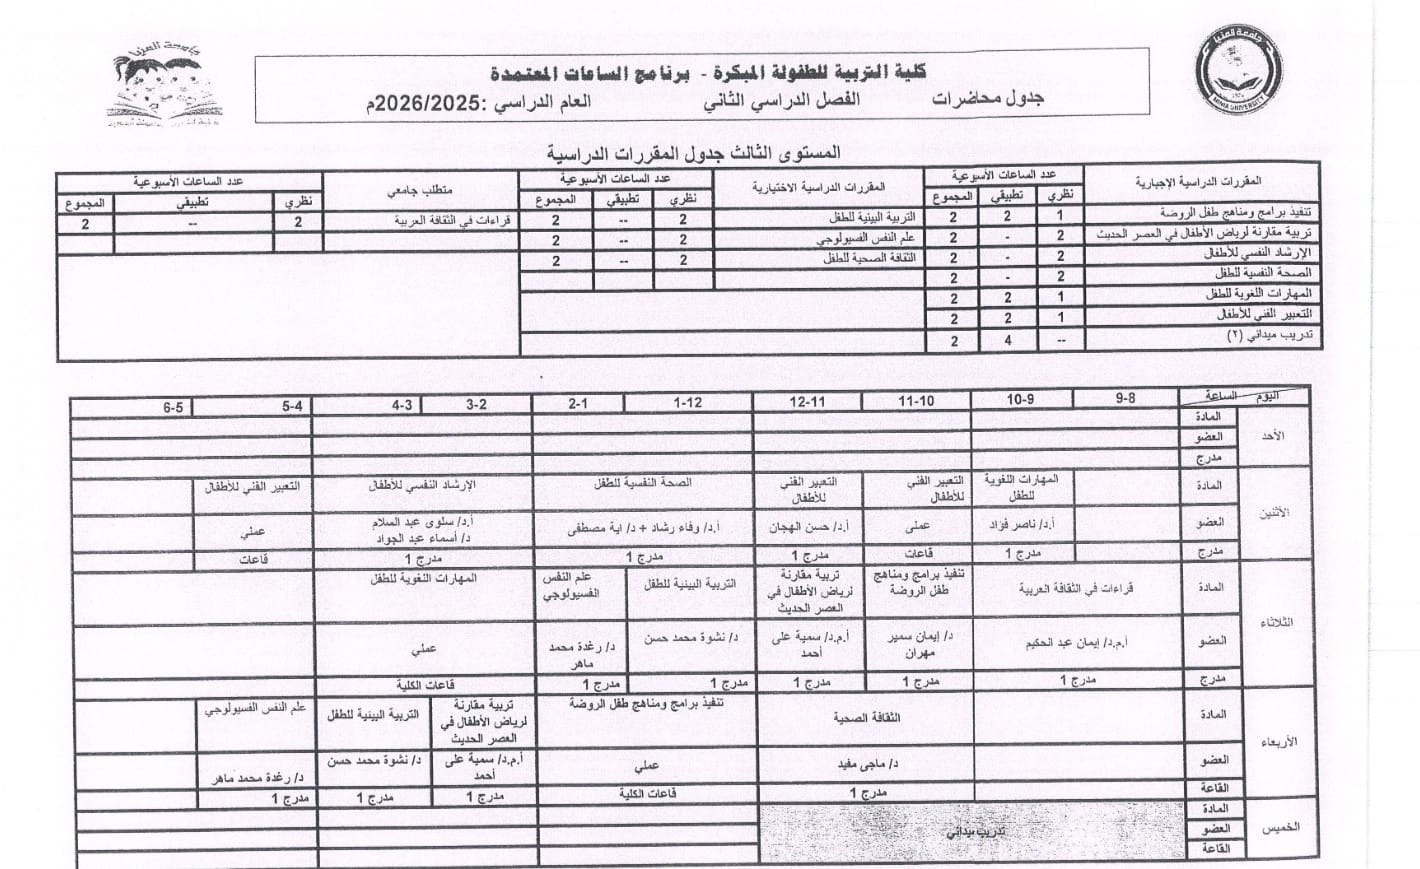 جامعة المنيا
MINIA UNIVERSITY
كلية التربية للطفولة المبكرة - برنامج الساعات المعتمدة
جدول محاضرات الفصل الدراسي الثاني العام الدراسي :2026/2025م
المستوى الثالث جدول المقررات الدراسية
المقررات الدراسية الإجبارية عدد الساعات الأسبوعية المقررات الدراسية الاختيارية عدد الساعات الأسبوعية متطلب جامعي عدد الساعات الأسبوعية
نظري تطبيقي المجموع نظري تطبيقي المجموع نظري تطبيقي المجموع
تنفيذ برامج ومناهج طفل الروضة 1 2 2 التربية البينية للطفل 2 -- 2 قراءات في الثقافة العربية 2 -- 2
تربية مقارنة لرياض الأطفال في العصر الحديث 2 - 2 علم النفس الفسيولوجي 2 -- 2
الإرشاد النفسي للأطفال 2 - 2 الثقافة الصحية للطفل 2 -- 2
الصحة النفسية للطفل 2 - 2
المهارات اللغوية للطفل 1 2 2
التعبير الفني للأطفال 1 2 2
تدريب ميداني (٢) -- 4 2
اليوم الساعة 9-8 10-9 11-10 12-11 1-12 2-1 3-2 4-3 5-4 6-5
الأحد
المادة
العضو
مدرج
الأثنين
المادة المهارات اللغوية للطفل التعبير الفني للأطفال التعبير الفني للأطفال الصحة النفسية للطفل الإرشاد النفسي للأطفال التعبير الفني للأطفال
العضو أ.د/ ناصر فؤاد عملى أ.د/ حسن الهجان أ.د/ وفاء رشاد + د/ اية مصطفى أ.د/ سلوى عبد السلام د/ أسماء عبد الجواد عملي
مدرج مدرج 1 قاعات مدرج 1 مدرج 1 مدرج 1 قاعات
الثلاثاء
المادة قراءات في الثقافة العربية تنفيذ برامج ومناهج طفل الروضة تربية مقارنة لرياض الأطفال في العصر الحديث التربية البينية للطفل علم النفس الفسيولوجي المهارات اللغوية للطفل
العضو أ.م.د/ إيمان عبد الحكيم د/ إيمان سمير مهران أ.م.د/ سمية على أحمد د/ نشوة محمد حسن د/ رغدة محمد ماهر عملي
مدرج مدرج 1 مدرج 1 مدرج 1 مدرج 1 مدرج 1 قاعات الكلية
الأربعاء
المادة الثقافة الصحية تنفيذ برامج ومناهج طفل الروضة تربية مقارنة لرياض الأطفال في العصر الحديث التربية البينية للطفل علم النفس الفسيولوجي
العضو د/ ماجى مفيد عملي أ.م.د/ سمية على أحمد د/ نشوة محمد حسن د/ رغدة محمد ماهر
القاعة مدرج 1 قاعات الكلية مدرج 1 مدرج 1 مدرج 1
الخميس
المادة
العضو تدريب ميداني
القاعة